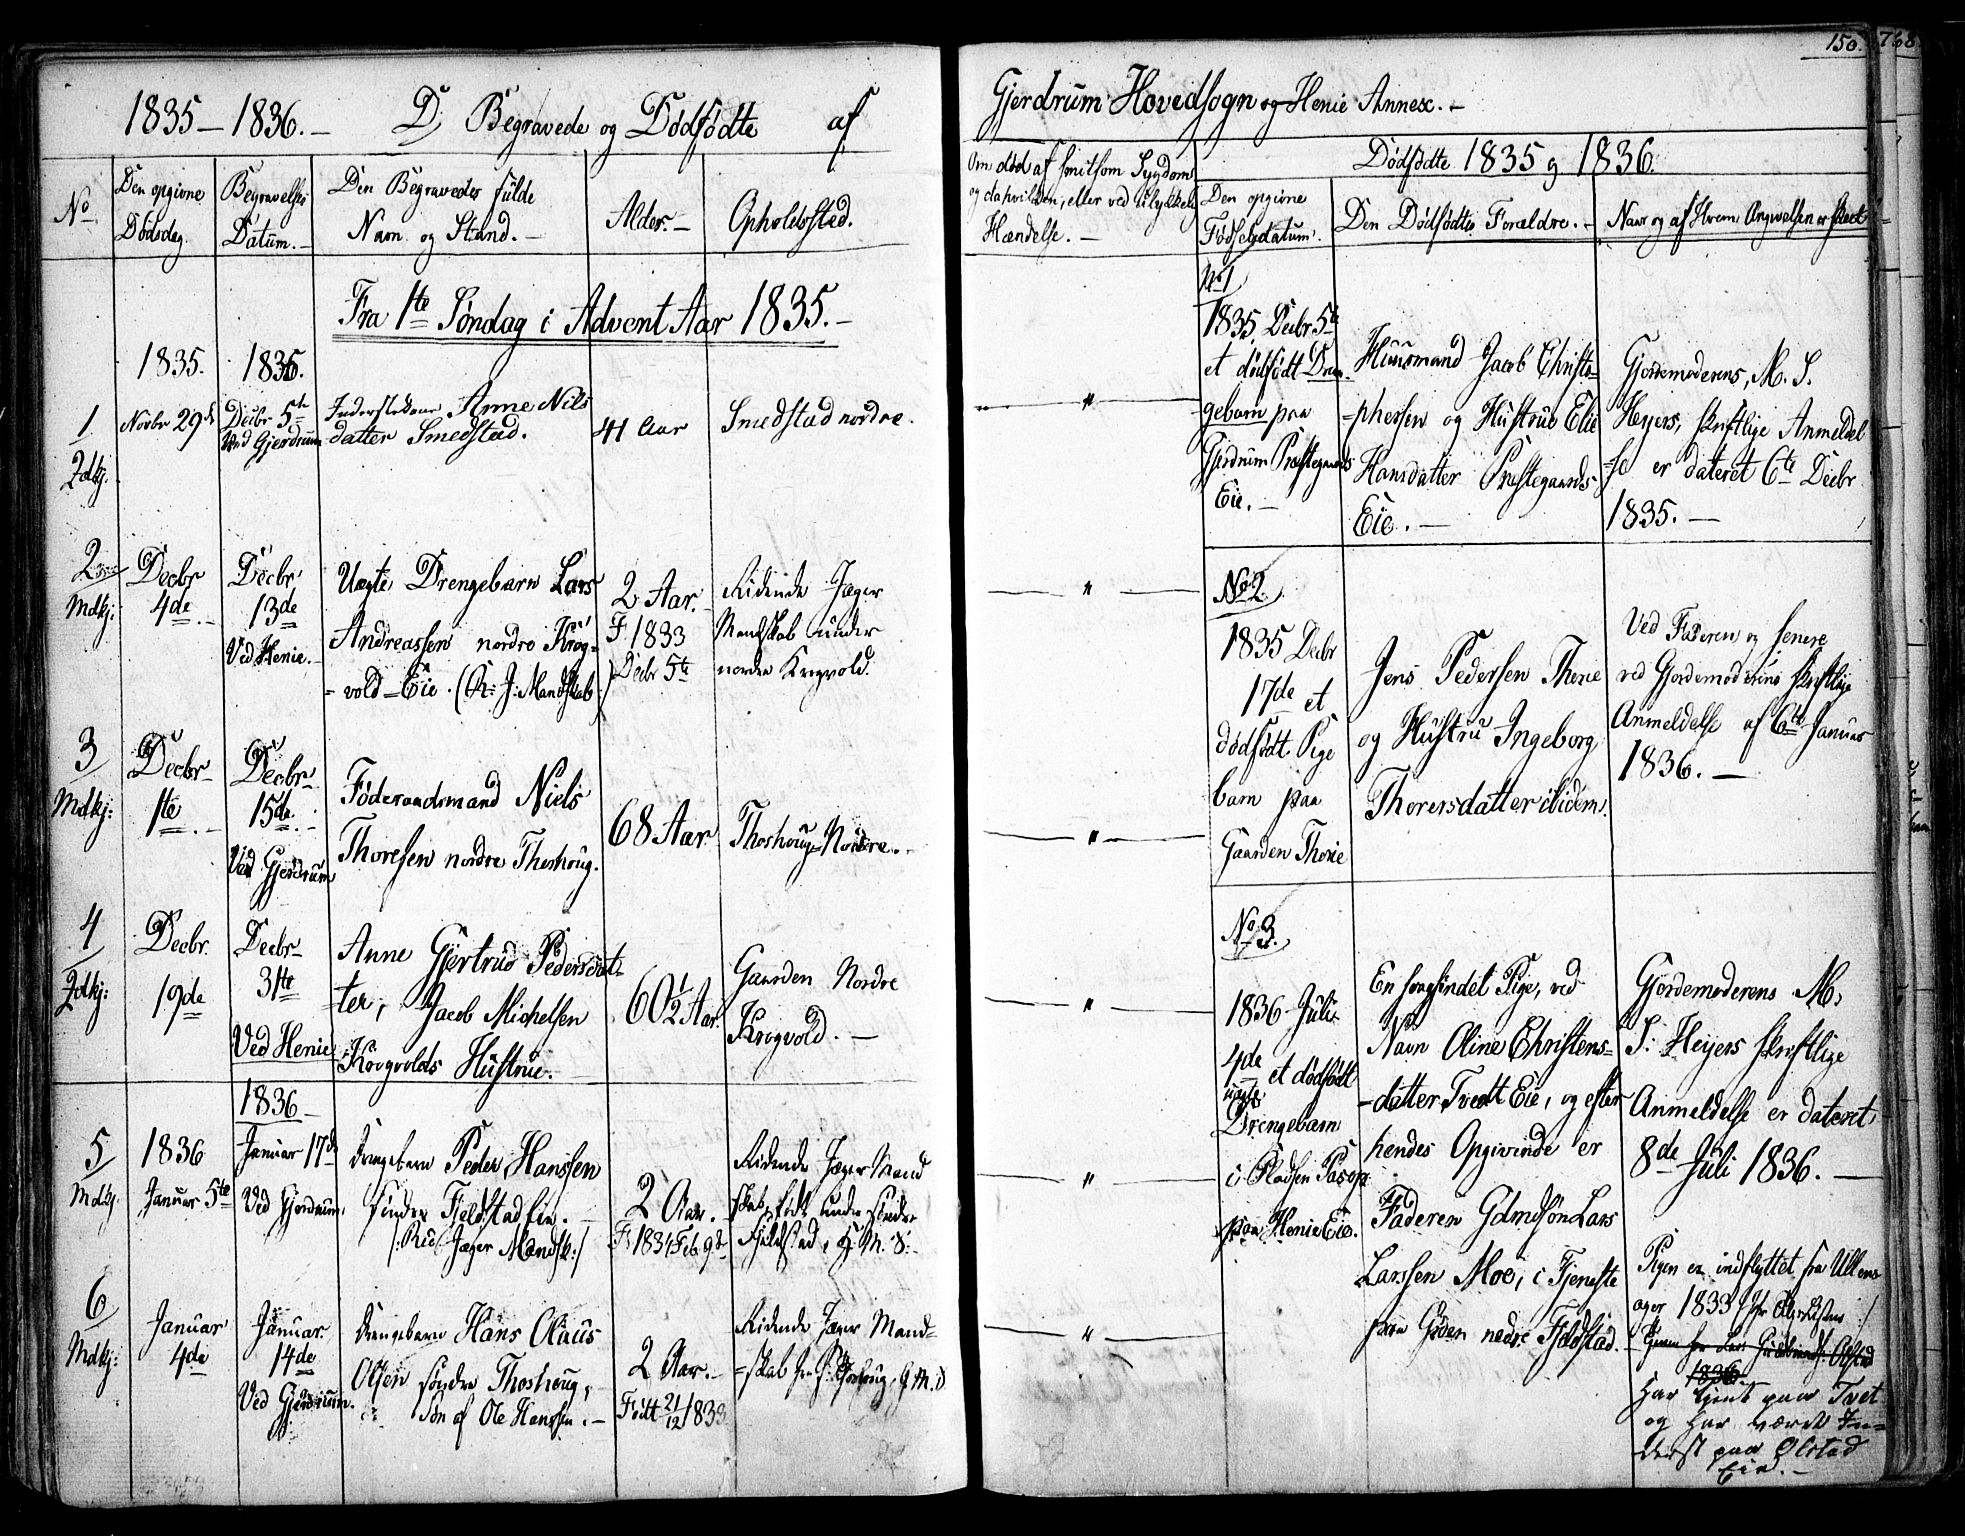 1835 — 1836. — D, Begravede og Dødfødte af
No
Den opgivne
Dødsdag.
Begravelses
Datum. —
Den Begravedes fulde
Navn og Stand. —
Alder. —
Opholdsstad.
Fra 1te Søndag i Advent Aar 1835. —
1835.
1835.
1
Qdkj.
Novbr 29de
Decbr 5te
Ved Gjerdrum
Inderstekone Anne Nils
datter Smedstad.
41 Aar
Smedstad nordre.
2
Mdkj:
Decbr
4de. —
Decbr
13de
Ved Henie. —
Uægte Drengebarn Lars
Andreassen nordre Krog-
= vold - Eie. (R: J: Mandskab:)
2 Aar.
F. 1833
Decbr 5te
Ridende Jæger
Mandskab under
nordre Krogvold.
3
Mdkj:
Decbr
1te. —
Decbr
15de.
Ved Gjerdrum
Føderaadsmand Niels
Thoresen nordre Thoshoug.
68 Aar
Thoshoug Nordre. —
4
Qdkj:
Decbr.
19de
Decbr
31te
Ved Henie
Anne Gjertrud Pedersdat-
=ter, Jacob Michelsen
Krogvolds Hustrue.
60 1/2 Aar.
Gaarden Nordre
Krogvold. —
1836
5
Mdkj.
1836
Januar 5te
Januar 17de
Ved Gjerdrum.
Drengebarn Peder Hanssen
søndre Fjeldstad Eie. —
/: Rid: Jæger Mandsk:/
2 Aar.
F. 1834 Feb. 9de
Ridende Jæger Mand
skab, født under søndre
Fjeldstad, G. M. S. —
6
Mdkj:
Januar
4de
Januar.
14de
Ved Gjerdrum.
Drengebarn Hans Olaus
Olsen søndre Thoshoug,
Søn af Ole Hanssen. —
2 Aar. —
Født 21/12 1833
Ridende Jæger Mand=
=skab Thoshoug, G. M. S
150.
Gjerdrum Hovedsogn og Henie Annex. —
Om død af smitsom Sygdom
og da hvilken, eller ved ulykkelig
Hændelse. —
Dødfødte 1835 og 1836.
Den opgivne
Fødselsdatum.
Den Dødfødtes Forældre. —
Naar og af Hvem Angivelsen er skeet
No 1
1835 Decbr 5te
et dødfødt Dren-
gebarn paa
Gjerdrum Præstegaards
Eie. —
Huusmand Jacob Christo=
=phersen og Hustrue Elie
Hansdatter Præstegaards
Eie. —
Gjordemoderens, M. S.
Heyers, skriftlige Anmeldel
=se er dateret 6te Decbr
1835. —
No 2.
1835 Decbr
17de et
dødfødt Pige
barn paa
Gaarden Thorie
Jens Pedersen Thorie
og Hustru Ingeborg
Thorersdatter ibidem.
Ved Faderen og senere
ved Gjordemoderens skriftlige
Anmeldelse af 6te Januar
1836. —
No 3.
1836 Juli
4de et dødfødt
uægte
Drengebarn
i Pladsen
paa Henie Eie.
En Pige, ved
Navn Oline Christens=
-datter Tvedt Eie, og efter
hendes Opgivende er
Faderen Lars
Larssen Moe, i Tjeneste
paa nedre Fjeldstad.
Gjordemoderens M.
S: Heyers skriftlige
Anmeldelse er dateret
8de Juli 1836. —
Pigen er indflyttet fra Ullens
ager 1833
1836.
Har tjent paa Tvet
og har været In=
derst paa Ølstad
Eie. —